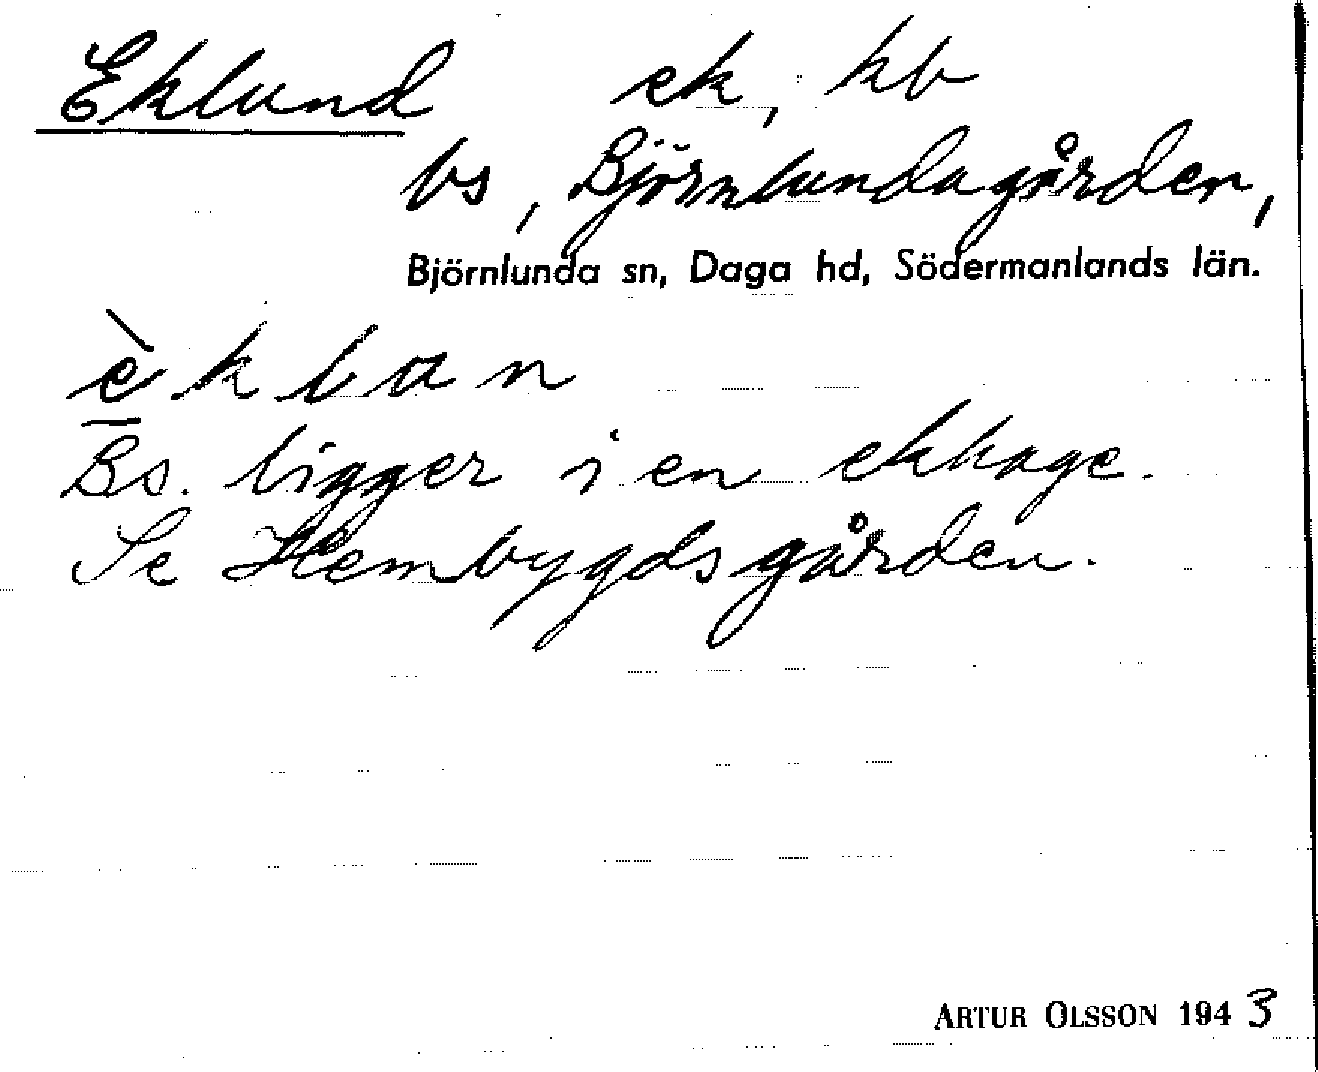 Eklund ek, kb
bs, Björnlundagården,
Björnlunda sn, Daga hd, Södermanlands län.
è k l a n
Bs. ligger i en ekhage.
Se Hembygdsgården.
ARTUR OLSSON 1943